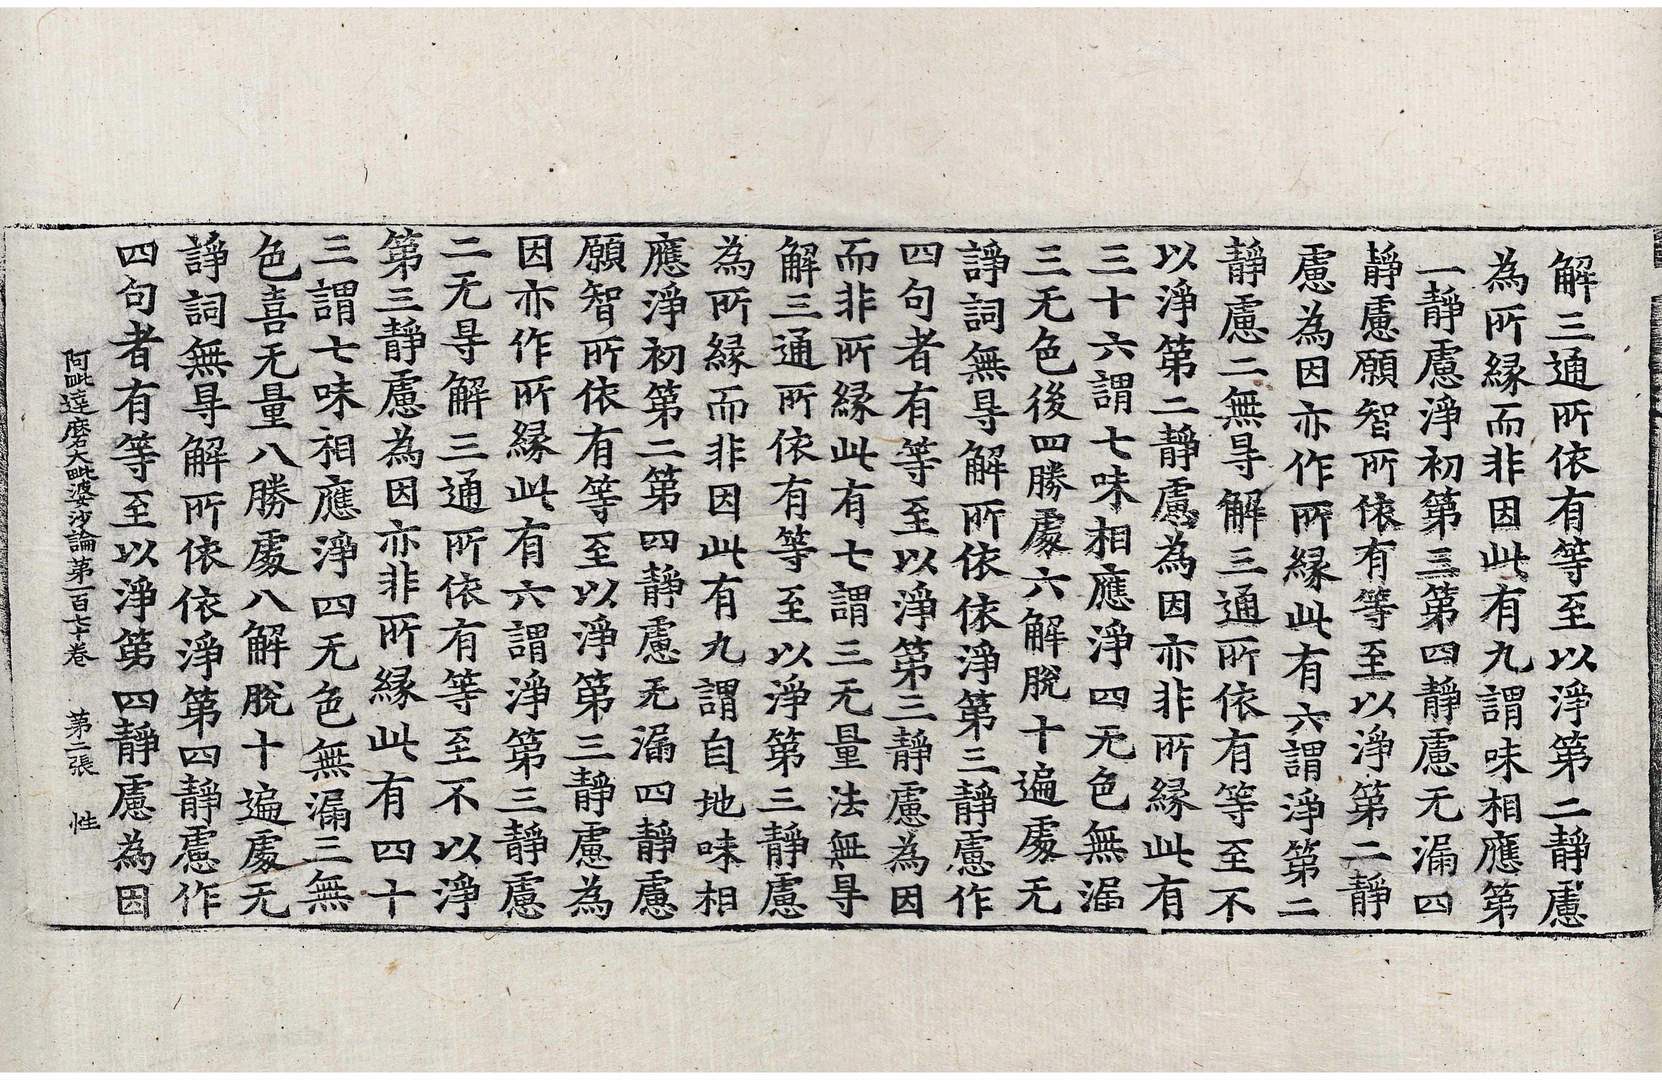 解三通所依有等至以淨第二靜慮
為所縁而非因此有九謂味相應第
一靜慮淨初第三第四靜慮无漏四
靜慮願智所依有等至以淨第二靜
慮為因亦作所縁此有六謂淨第二
靜慮二無㝵解三通所依有等至不
以淨第二靜慮為因亦非所縁此有
三十六謂七味相應淨四无色無漏
三无色後四勝處六解脫十遍處无
諍詞無㝵解所依依淨第三靜慮作
四句者有等至以淨第三靜慮為因
而非所縁此有七謂三无量法無㝵
解三通所依有等至以淨第三靜慮
為所縁而非因此有九謂自地味相
應淨初第二第四靜慮无漏四靜慮
願智所依有等至以淨第三靜慮為
因亦作所縁此有六謂淨第三靜慮
二无㝵解三通所依有等至不以淨
第三靜慮為因亦非所縁此有四十
三謂七味相應淨四无色無漏三無
色喜无量八勝處八解脫十遍處无
諍詞無㝵解所依依淨第四靜慮作
四句者有等至以淨第四靜慮為因
阿毗達磨大毗婆沙論第一百七十卷　第二張　性